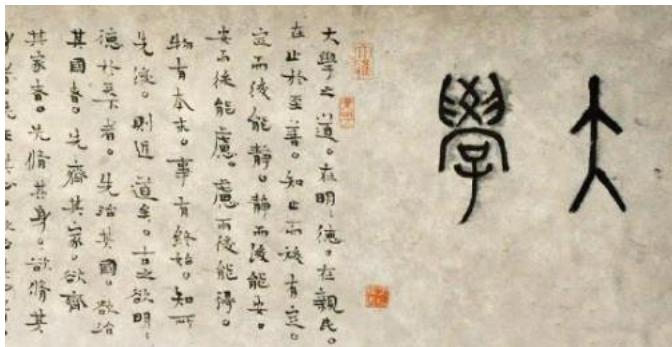 大學
大學之道。在明〻德。在親民。
在止於至善。知止而後有定。
定而後能靜。靜而後能安。
安而後能慮。慮而後能得。
物有本末。事有終始。知所
先後。則近道矣。古之欲明〻
德於天下者。先治其國。欲治
其國者。先齊其家。欲齊
其家者。先脩其身。欲脩其